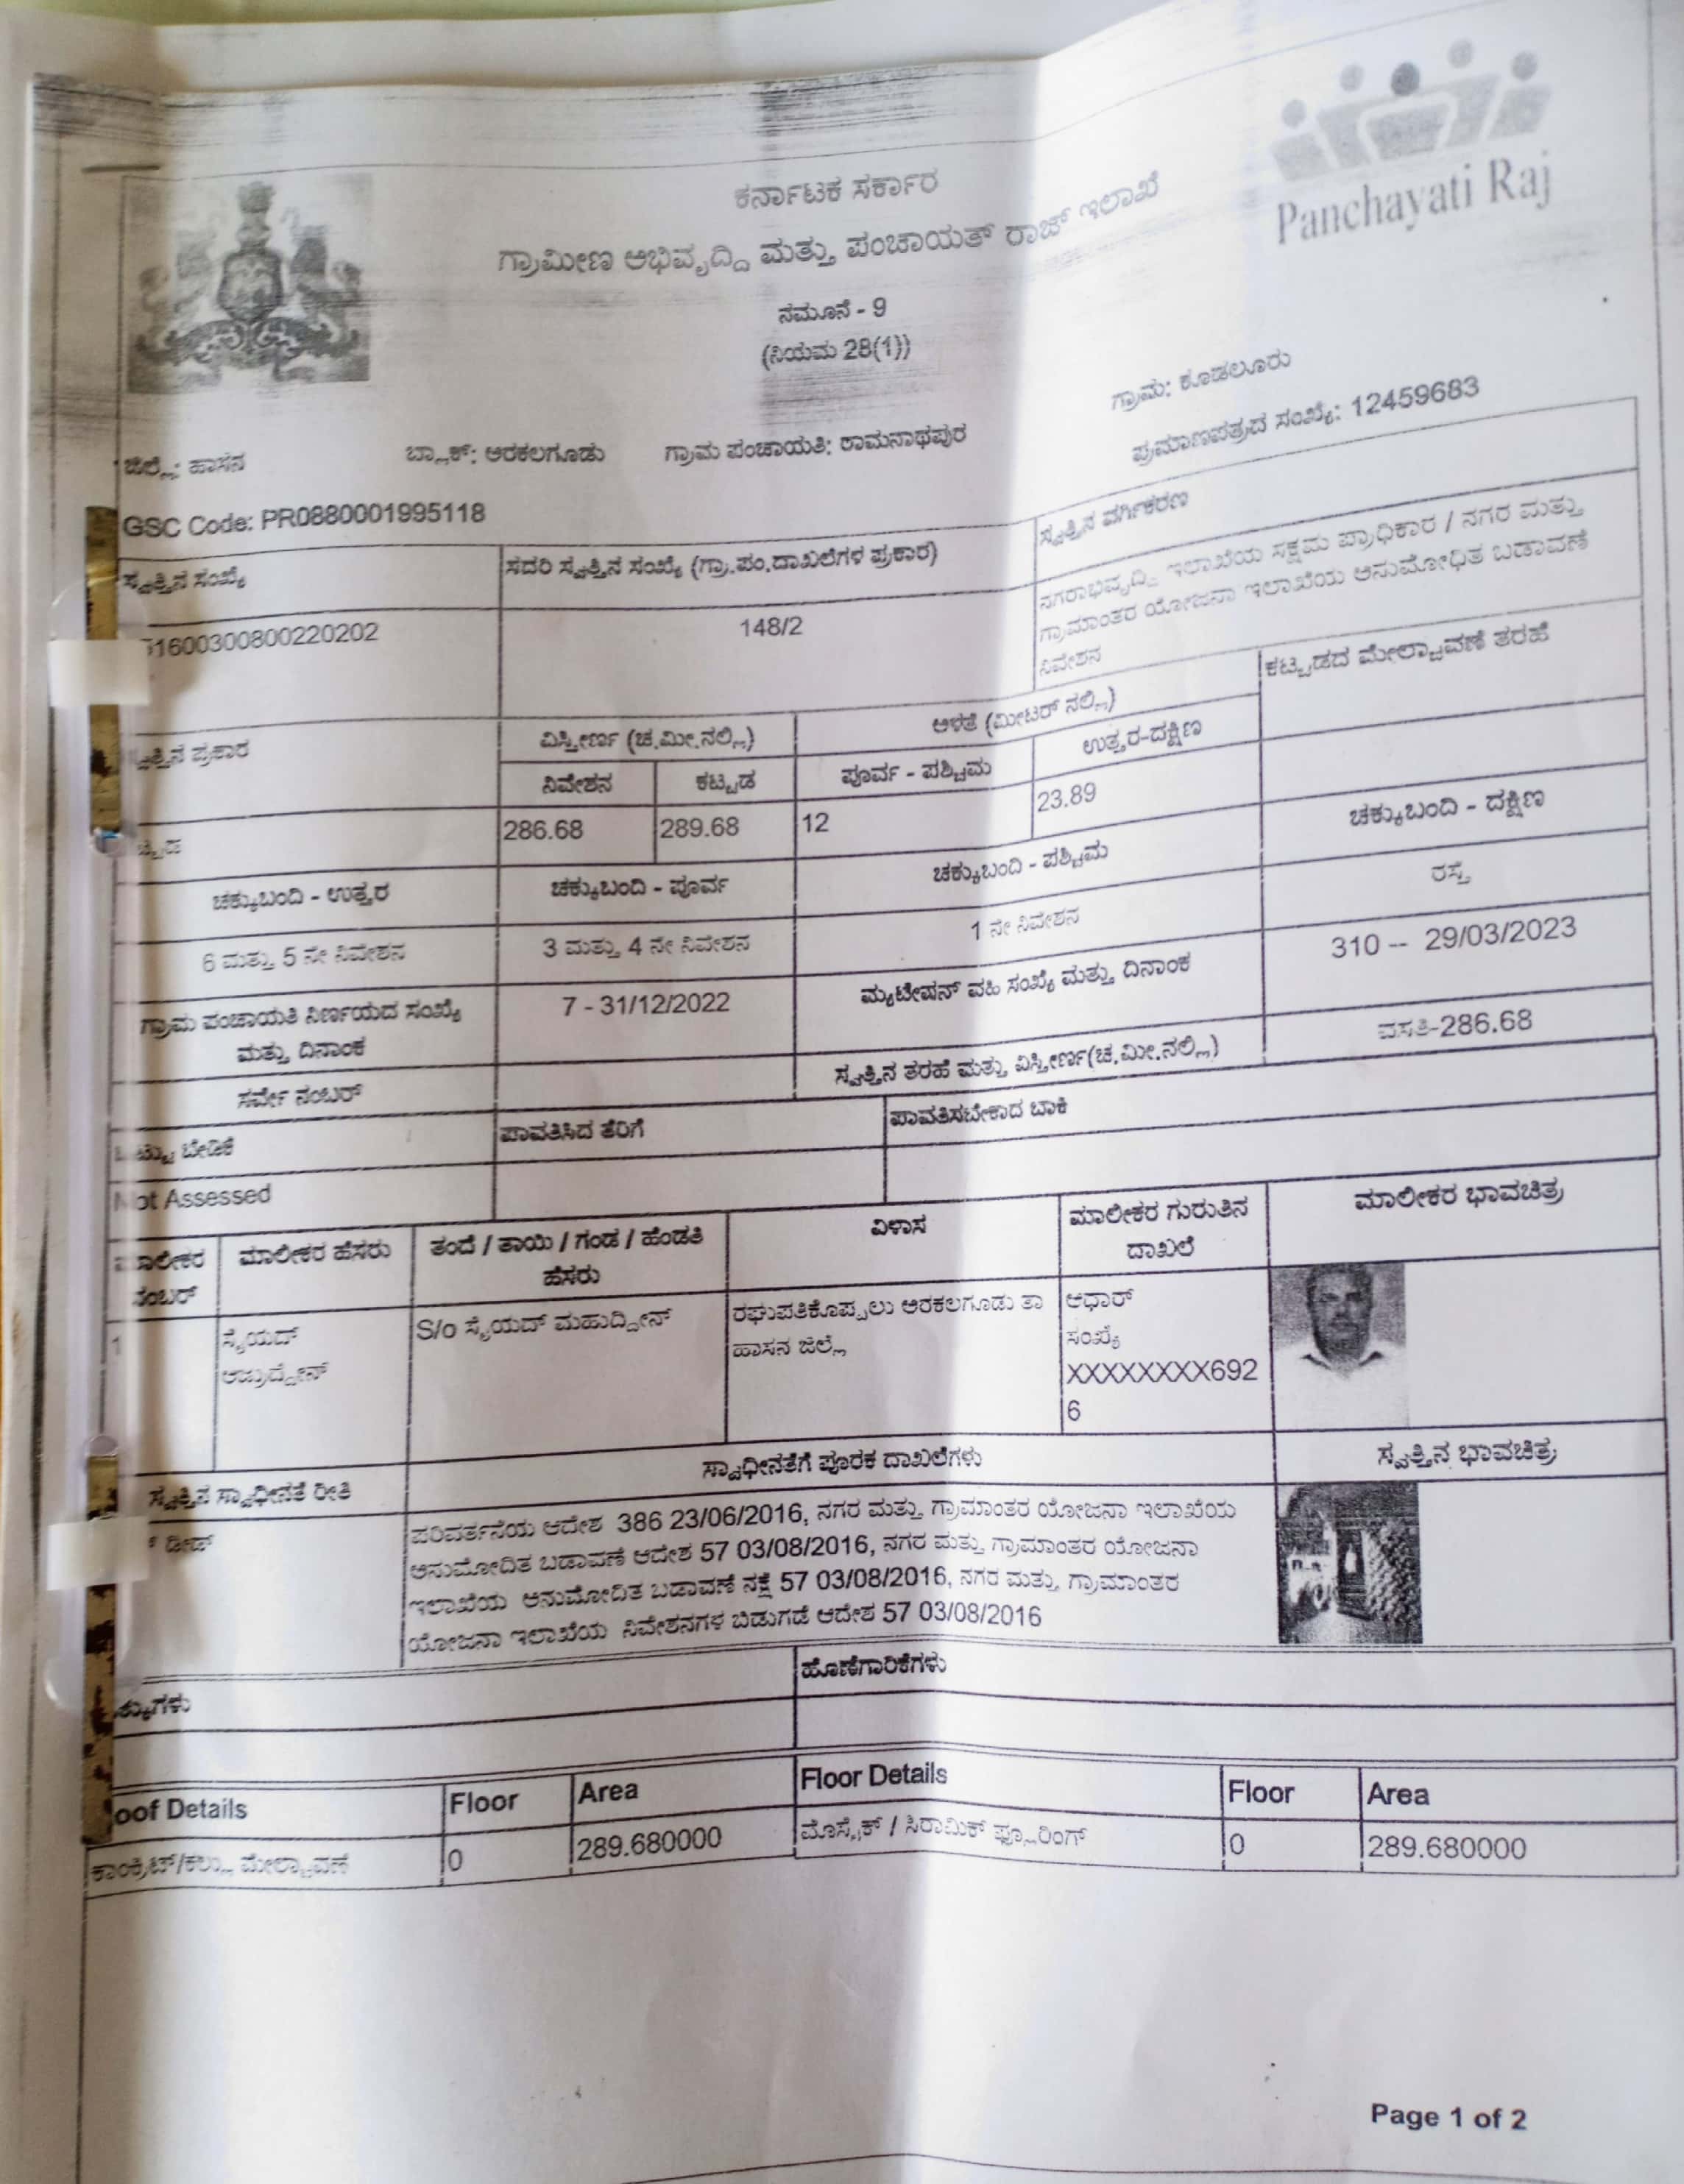 ಕರ್ನಾಟಕ ಸರ್ಕಾರ
ಗ್ರಾಮೀಣ ಅಭಿವೃದ್ಧಿ ಮತ್ತು ಪಂಚಾಯತ್ ರಾಜ್ ಇಲಾಖೆ
Panchayati Raj
ನಮೂನೆ - 9
(ನಿಯಮ 28(1))
ಜಿಲ್ಲೆ: ಹಾಸನ
ಬ್ಲಾಕ್: ಅರಕಲಗೂಡು
ಗ್ರಾಮ ಪಂಚಾಯತಿ: ರಾಮನಾಥಪುರ
ಗ್ರಾಮ: ಕೂಡಲೂರು
ಪ್ರಮಾಣಪತ್ರದ ಸಂಖ್ಯೆ: 12459683
GSC Code: PR0880001995118
ಸ್ವತ್ತಿನ ಸಂಖ್ಯೆ
ಸದರಿ ಸ್ವತ್ತಿನ ಸಂಖ್ಯೆ (ಗ್ರಾ.ಪಂ.ದಾಖಲೆಗಳ ಪ್ರಕಾರ)
ಸ್ವತ್ತಿನ ವರ್ಗೀಕರಣ
51600300800220202
148/2
ನಗರಾಭಿವೃದ್ಧಿ ಇಲಾಖೆಯ ಸಕ್ಷಮ ಪ್ರಾಧಿಕಾರ / ನಗರ ಮತ್ತು
ಗ್ರಾಮಾಂತರ ಯೋಜನಾ ಇಲಾಖೆಯ ಅನುಮೋಧಿತ ಬಡಾವಣೆ
ನಿವೇಶನ
ಸ್ವತ್ತಿನ ಪ್ರಕಾರ
ವಿಸ್ತೀರ್ಣ (ಚ.ಮೀ.ನಲ್ಲಿ)
ಅಳತೆ (ಮೀಟರ್ ನಲ್ಲಿ)
ಕಟ್ಟಡದ ಮೇಲ್ಚಾವಣೆ ತರಹೆ
ನಿವೇಶನ
ಕಟ್ಟಡ
ಪೂರ್ವ - ಪಶ್ಚಿಮ
ಉತ್ತರ-ದಕ್ಷಿಣ
286.68
289.68
12
23.89
ಚಕ್ಕುಬಂದಿ - ಉತ್ತರ
ಚಕ್ಕುಬಂದಿ - ಪೂರ್ವ
ಚಕ್ಕುಬಂದಿ - ಪಶ್ಚಿಮ
ಚಕ್ಕುಬಂದಿ - ದಕ್ಷಿಣ
6 ಮತ್ತು 5 ನೇ ನಿವೇಶನ
3 ಮತ್ತು 4 ನೇ ನಿವೇಶನ
1 ನೇ ನಿವೇಶನ
ರಸ್ತೆ
ಗ್ರಾಮ ಪಂಚಾಯತಿ ನಿರ್ಣಯದ ಸಂಖ್ಯೆ
ಮತ್ತು ದಿನಾಂಕ
7 - 31/12/2022
ಮ್ಯುಟೇಷನ್ ವಹಿ ಸಂಖ್ಯೆ ಮತ್ತು ದಿನಾಂಕ
310 -- 29/03/2023
ಸರ್ವೇ ನಂಬರ್
ಸ್ವತ್ತಿನ ತರಹೆ ಮತ್ತು ವಿಸ್ತೀರ್ಣ(ಚ.ಮೀ.ನಲ್ಲಿ)
ವಸತಿ-286.68
ಒಟ್ಟು ಬೇಡಿಕೆ
ಪಾವತಿಸಿದ ತೆರಿಗೆ
ಪಾವತಿಸಬೇಕಾದ ಬಾಕಿ
Not Assessed
ಮಾಲೀಕರ
ನಂಬರ್
ಮಾಲೀಕರ ಹೆಸರು
ತಂದೆ / ತಾಯಿ / ಗಂಡ / ಹೆಂಡತಿ
ಹೆಸರು
ವಿಳಾಸ
ಮಾಲೀಕರ ಗುರುತಿನ
ದಾಖಲೆ
ಮಾಲೀಕರ ಭಾವಚಿತ್ರ
1
ಸೈಯದ್
S/o ಸೈಯದ್ ಮಹುದ್ದೀನ್
ರಘುಪತಿಕೊಪ್ಪಲು ಅರಕಲಗೂಡು ತಾ
ಹಾಸನ ಜಿಲ್ಲೆ
ಆಧಾರ್
ಸಂಖ್ಯೆ
XXXXXXXX692
6
ಸ್ವತ್ತಿನ ಸ್ವಾಧೀನತೆ ರೀತಿ
ಸ್ವಾಧೀನತೆಗೆ ಪೂರಕ ದಾಖಲೆಗಳು
ಸ್ವತ್ತಿನ ಭಾವಚಿತ್ರ
ಡೀಡ್
ಪರಿವರ್ತನೆಯ ಆದೇಶ 386 23/06/2016, ನಗರ ಮತ್ತು ಗ್ರಾಮಾಂತರ ಯೋಜನಾ ಇಲಾಖೆಯ
ಅನುಮೋದಿತ ಬಡಾವಣೆ ಆದೇಶ 57 03/08/2016, ನಗರ ಮತ್ತು ಗ್ರಾಮಾಂತರ ಯೋಜನಾ
ಇಲಾಖೆಯ ಅನುಮೋದಿತ ಬಡಾವಣೆ ನಕ್ಷೆ 57 03/08/2016, ನಗರ ಮತ್ತು ಗ್ರಾಮಾಂತರ
ಯೋಜನಾ ಇಲಾಖೆಯ ನಿವೇಶನಗಳ ಬಿಡುಗಡೆ ಆದೇಶ 57 03/08/2016
ಹೊಣೆಗಾರಿಕೆಗಳು
oof Details
Floor
Area
Floor Details
Floor
Area
ಕಾಂಕ್ರಿಟ್/ಕಲ್ಲು ಮೇಲ್ಚಾವಣೆ
0
289.680000
ಮೊಸೈಕ್ / ಸಿರಾಮಿಕ್ ಫ್ಲೂರಿಂಗ್
0
289.680000
Page 1 of 2